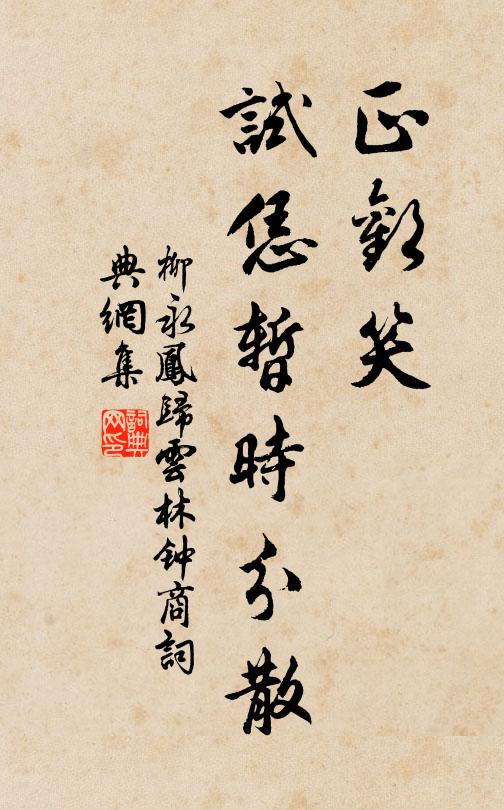 正歡笑
試恁暫時分散
柳永鳳歸雲林钟商詞
典網集
詞典网印